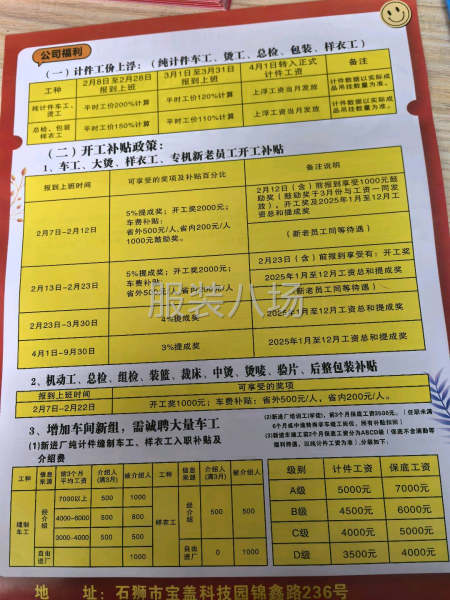 公司福利
(一)计件工价上浮:(纯计件车工、烫工、总检、包装、样衣工)
工种 2月8日至2月28日报到上班 3月1日至3月31日报到上班 4月1日转入正式计件工资 备注
纯计件车工、烫工 平时工价200%计算 平时工价120%计算 上浮工资当月发放 计件数据以实际成品吊挂数量为准。
总检、包装样衣工 平时工价150%计算 平时工价110%计算 上浮工资当月发放 计件数据以实际成品吊挂数量为准。
(二)开工补贴政策:
1、车工、大烫、样衣工、专机新老员工开工补贴
报到上班时间 可享受的奖项及补贴百分比 备注说明
2月7日-2月12日 5%提成奖;开工奖2000元;车费补贴:省外500元/人,省内200元/人 1000元鼓励奖。 2月12日(含)前报到享受1000元鼓励奖(鼓励奖于3月份与工资一同发放)。开工奖及2025年1月至12月工资总和提成奖
(新老员工同等待遇)
2月13日-2月23日 5%提成奖;开工奖2000元;车费补贴:省外500元/人,省内200元/人 2月23日(含)前报到享受有:开工奖 2025年1月至12月工资总和提成奖(新老员工同等待遇)
2月23日-3月30日 4%提成奖 2025年1月至12月工资总和提成奖
4月1日-9月30日 3%提成奖 2025年1月至12月工资总和提成奖
2、机动工、总检、组检、装篮、裁床、中烫、烫唛、验片、后整包装补贴
报到上班时间 可享受的奖项
2月7日-2月22日 开工奖1000元;车费补贴:省外500元/人,省内200元/人。
3、增加车间新组,需诚聘大量车工
(1)新进厂纯计件缝制车工、样衣工入职补贴及介绍费
工种 信息来源 前3个月平均工资 介绍人(满3月) 被介绍人 工种 信息来源 介绍人(满3月) 被介绍人
缝制车工 经介绍 7000以上 500 1000 样衣工 经介绍 500 500
4000-6000 500 800
3000-4000 500 500
自由进厂 1000 自由进厂 0 1000
级别 计件工资 保底工资
A级 5000元 7000元
B级 4500元 6000元
C级 4000元 5000元
D级 3500元 4000元
地 址:石狮市宝盖科技园锦鑫路236号
服装八场